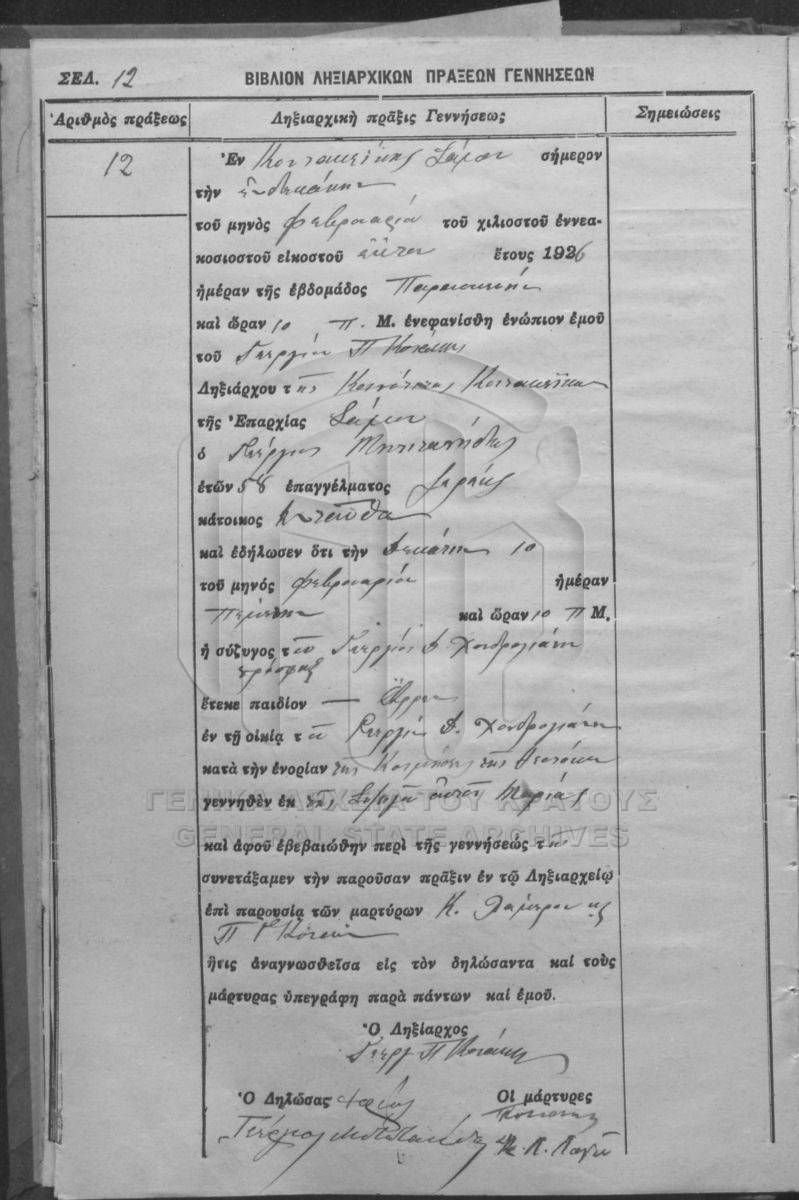 ΣΕΛ. 12 ΒΙΒΛΙΟΝ ΛΗΞΙΑΡΧΙΚΩΝ ΠΡΑΞΕΩΝ ΓΕΝΝΗΣΕΩΝ
Ἀριθμὸς πράξεως Ληξιαρχικὴ πρᾶξις Γεννήσεως Σημειώσεις
12 Ἐν Κοντακέϊκης Σάμου σήμερον
τὴν ἑνδεκάτην
τοῦ μηνὸς Φεβρουαρίου τοῦ χιλιοστοῦ ἐννεα-
κοσιοστοῦ εἰκοστοῦ ἕκτου ἔτους 1926
ἡμέραν τῆς ἑβδομάδος Παρασκευὴν
καὶ ὥραν 10 π. Μ. ἐνεφανίσθη ἐνώπιον ἐμοῦ
τοῦ Γεωργίου Π
Ληξιάρχου τῆς Κοινότητος Κοντακέϊκα
τῆς Ἐπαρχίας Σάμου
ὁ Γεώργιος
ἐτῶν 58 ἐπαγγέλματος
κάτοικος ἐνταῦθα
καὶ ἐδήλωσεν ὅτι τὴν δεκάτην 10
τοῦ μηνός Φεβρουαρίου ἡμέραν
Πέμπτην καὶ ὥραν 10 π Μ.
ἡ σύζυγος τοῦ Γεωργίου Δ Χονδρογιάννη
πρόσφυξ
ἔτεκε παιδίον — ἄρρεν
ἐν τῇ οἰκίᾳ τοῦ Γεωργίου Δ. Χονδρογιάννη
κατὰ τὴν ἐνορίαν τῆς Κοιμήσεως τῆς Θεοτόκου
γεννηθὲν ἐκ τῆς συζύγου αὐτοῦ Μαρίας
ΓΕΝΙΚΑ ΑΡΧΕΙΑ ΤΟΥ ΚΡΑΤΟΥΣ
GENERAL STATE ARCHIVES
καὶ ἀφοῦ ἐβεβαιώθην περὶ τῆς γεννήσεώς του
συνετάξαμεν τὴν παροῦσαν πρᾶξιν ἐν τῷ Ληξιαρχείῳ
ἐπὶ παρουσίᾳ τῶν μαρτύρων Κ.
Π Γ
ἥτις ἀναγνωσθεῖσα εἰς τὸν δηλώσαντα καὶ τοὺς
μάρτυρας ὑπεγράφη παρὰ πάντων καὶ ἐμοῦ.
Ὁ Ληξίαρχος
Γεώργ Π
Ὁ Δηλώσας Οἱ μάρτυρες
Γεώργιος